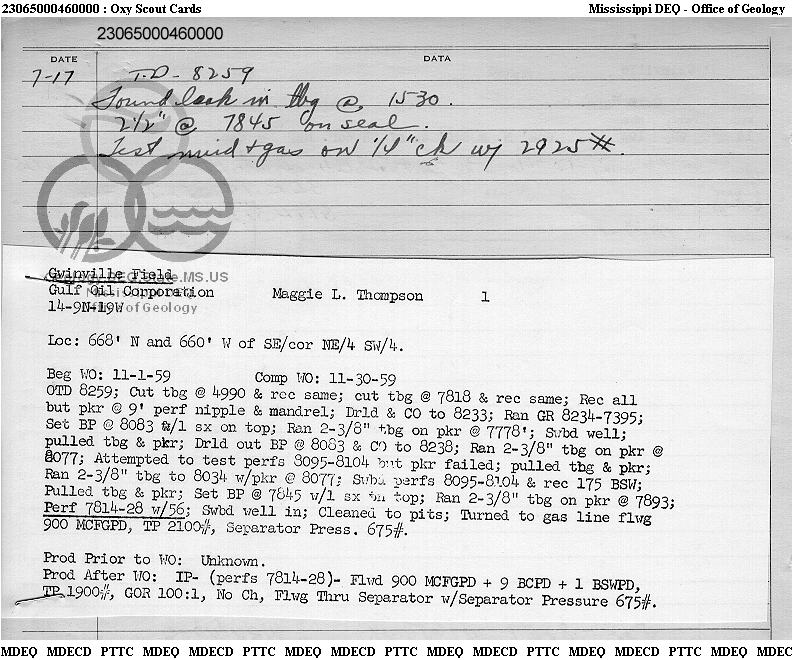 23065000460000 : Oxy Scout Cards Mississippi DEQ - Office of Geology
23065000460000
DATE DATA
7-17 T.D - 8259
Found leak in tbg @ 1530.
2½" @ 7845 on seal.
Test mud + gas on ¼" ck w/ 2925 #.
Gwinville Field
Geology.DEQ.State.MS.US
Gulf Oil Corporation Maggie L. Thompson 1
14-9N-19W
Office of Geology
Loc: 668' N and 660' W of SE/cor NE/4 SW/4.
Beg WO: 11-1-59 Comp WO: 11-30-59
OTD 8259; Cut tbg @ 4990 & rec same; cut tbg @ 7818 & rec same; Rec all
but pkr @ 9' perf nipple & mandrel; Drld & CO to 8233; Ran GR 8234-7395;
Set BP @ 8083 w/1 sx on top; Ran 2-3/8" tbg on pkr @ 7778'; Swbd well;
pulled tbg & pkr; Drld out BP @ 8083 & CO to 8238; Ran 2-3/8" tbg on pkr @
8077; Attempted to test perfs 8095-8104 but pkr failed; pulled tbg & pkr;
Ran 2-3/8" tbg to 8034 w/pkr @ 8077; Swbd perfs 8095-8104 & rec 175 BSW;
Pulled tbg & pkr; Set BP @ 7845 w/1 sx on top; Ran 2-3/8" tbg on pkr @ 7893;
Perf 7814-28 w/56; Swbd well in; Cleaned to pits; Turned to gas line flwg
900 MCFGPD, TP 2100#, Separator Press. 675#.
Prod Prior to WO: Unknown.
Prod After WO: IP- (perfs 7814-28)- Flwd 900 MCFGPD + 9 BCPD + 1 BSWPD,
TP 1900#, GOR 100:1, No Ch, Flwg Thru Separator w/Separator Pressure 675#.
MDEQ MDECD PTTC MDEQ MDECD PTTC MDEQ MDECD PTTC MDEQ MDECD PTTC MDEQ MDECD PTTC MDEQ MDEC